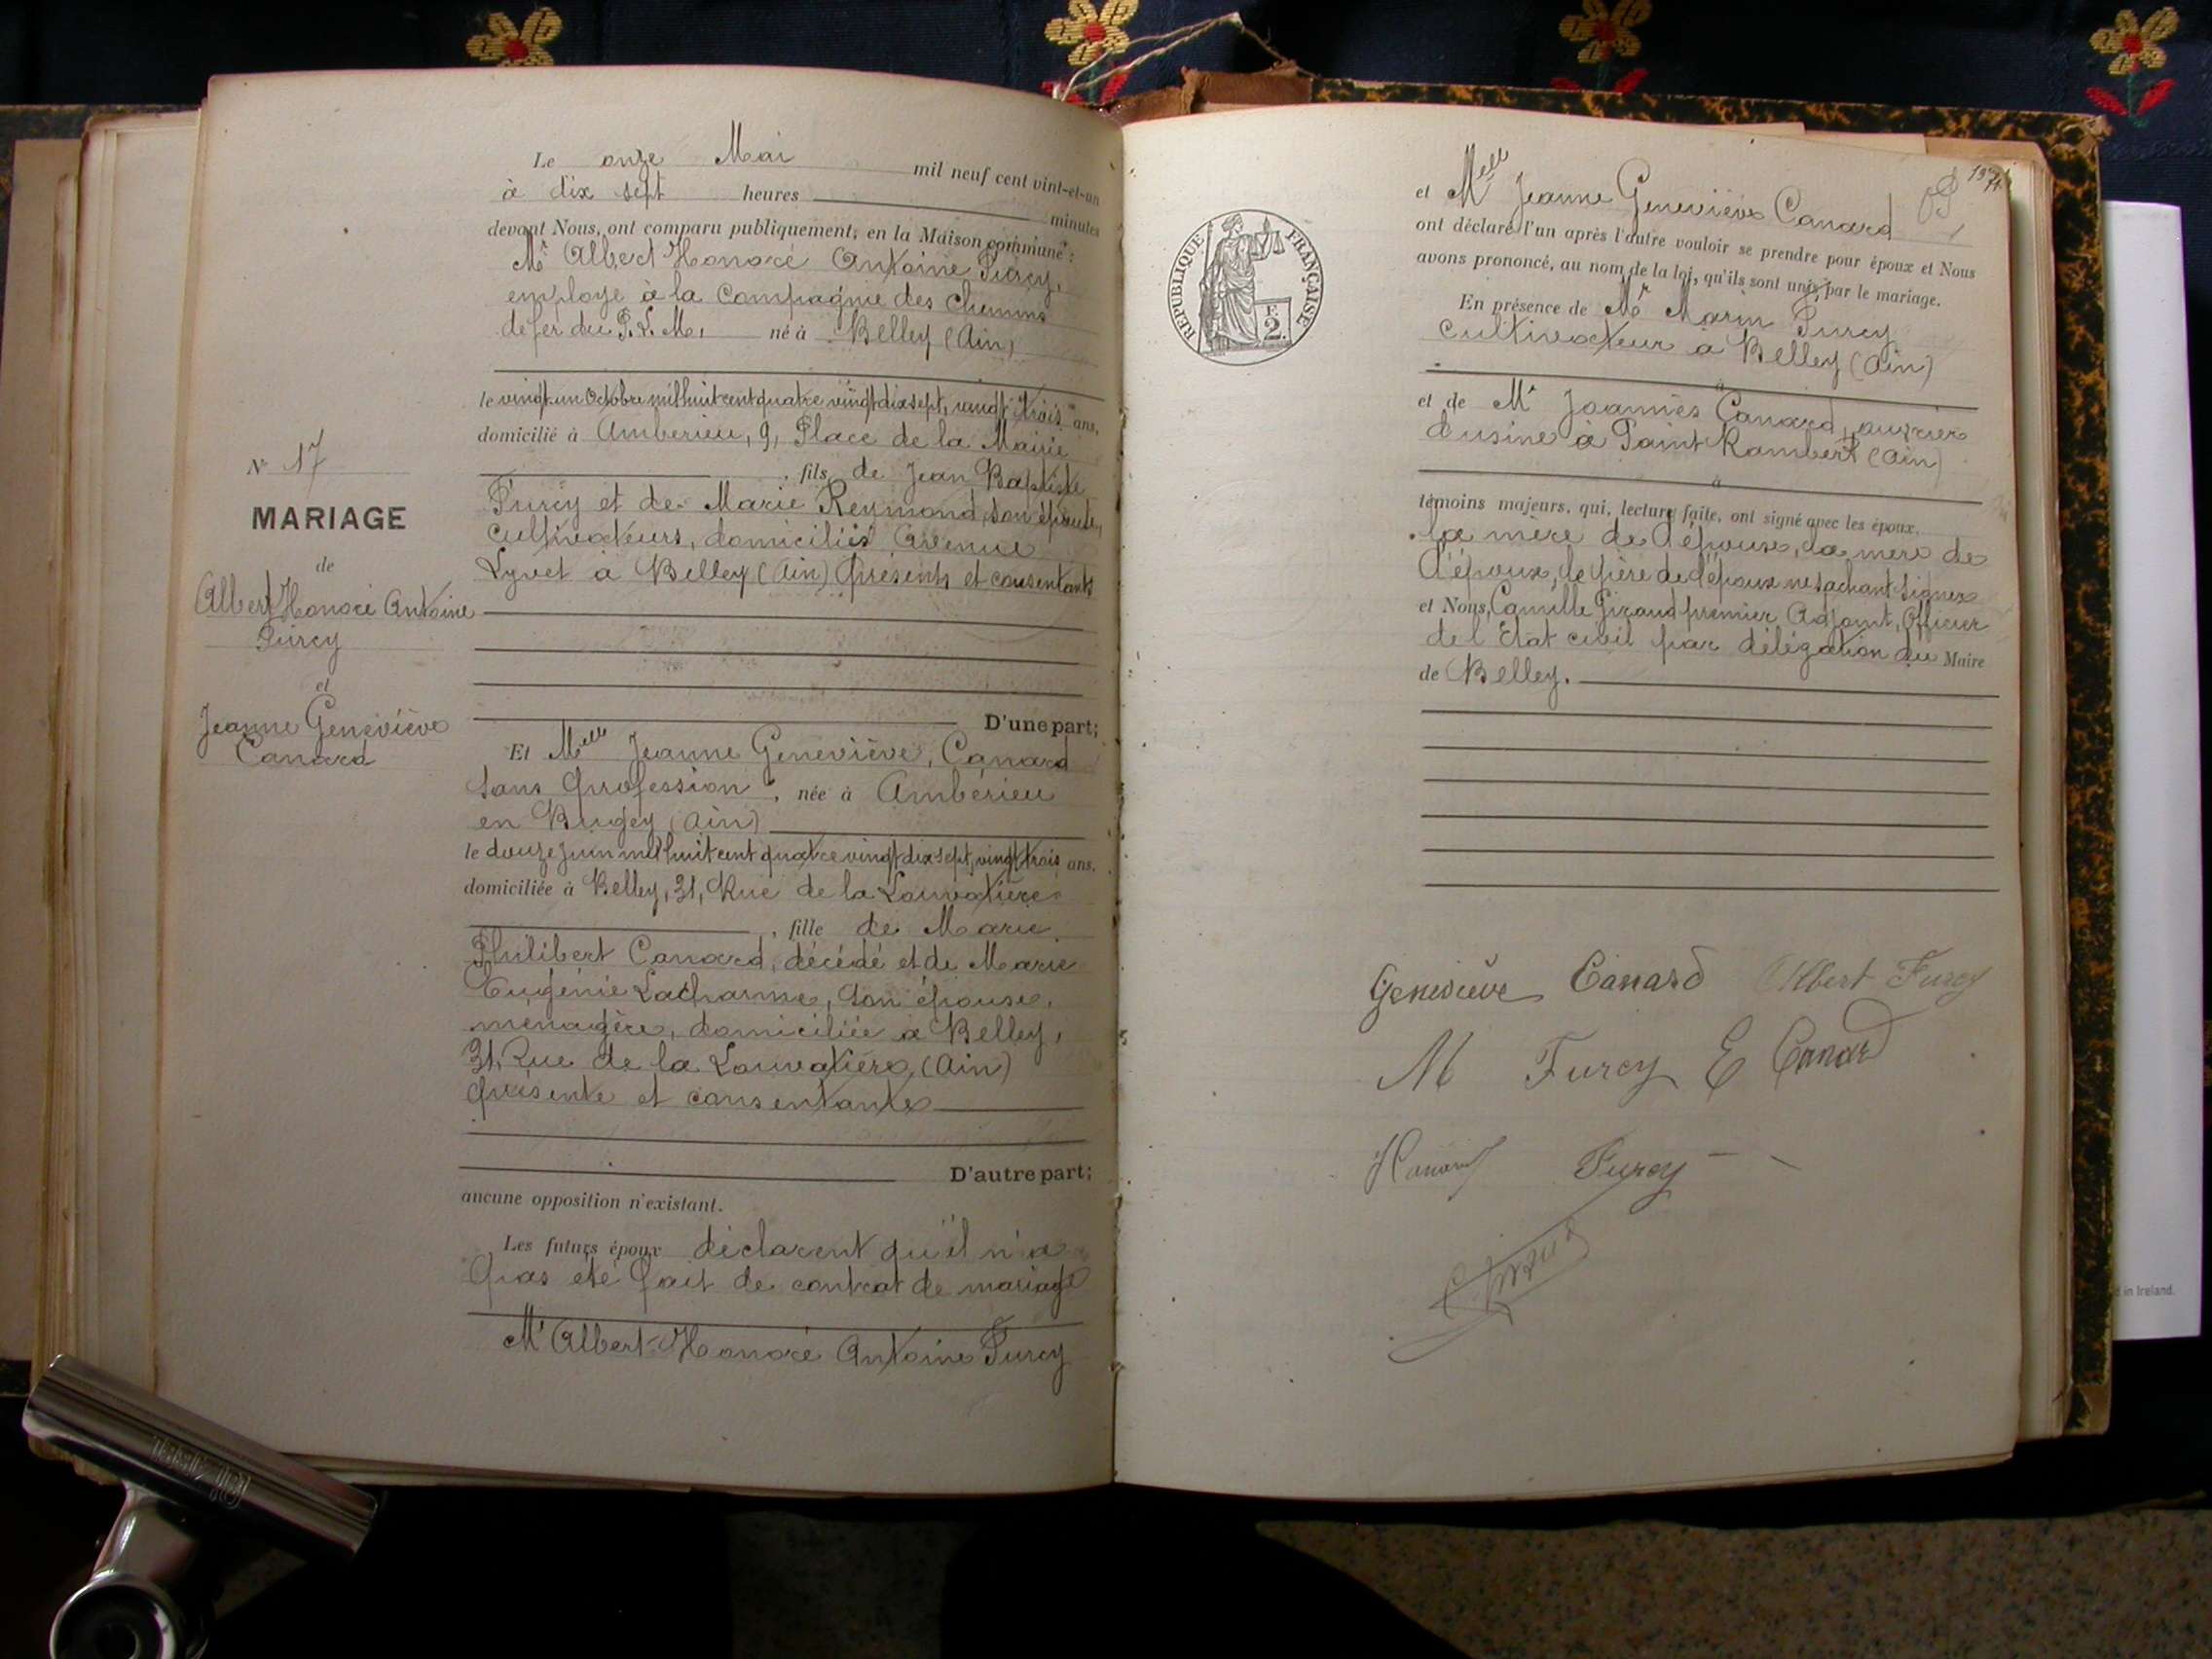 Le onze Mai mil neuf cent vint-et-un
à dix sept heures minutes
devant Nous, ont comparu publiquement, en la Maison commune :
Mr Albert Honoré Antoine Furcy,
employe à la Compagnie des chemins
de fer du P. L. M. né à Belley (Ain)
le vingt un Octobre mil huit cent quatre vingt dix sept, vingt trois ans,
domicilié à Amberieu, 9, Place de la Mairie
, fils de Jean Baptiste
Furcy et de Marie Reymond, son épouse,
cultivateurs, domiciliés Avenue
Lyvet à Belley (Ain) présents et consentants
N° 17
MARIAGE
de
Albert Honoré Antoine
Furcy
et
Jeanne Geneviève
Canard
D'une part;
Et Melle Jeanne Geneviève, Canard
sans profession, née à Amberieu
en Bugey (Ain)
le douze Juin mil huit cent quatre vingt dix sept, vingt trois ans.
domiciliée à Belley, 31, Rue de la Louvatière
, fille de Marie
Philibert Canard, décédé et de Marie
Eugénie Lacharme, son épouse,
menagère, domiciliée à Belley,
31, Rue de la Louvatière, (Ain)
présente et consentante
D'autre part;
aucune opposition n'existant.
Les futurs époux déclarent qu'il n'a
pas été fait de contrat de mariage
Mr Albert Honoré Antoine Furcy
REPUBLIQUE FRANÇAISE
2F.
et Melle Jeanne Geneviève Canard
ont déclaré l'un après l'autre vouloir se prendre pour époux et Nous
avons prononcé, au nom de la loi, qu'ils sont unis par le mariage.
En présence de Mr Marin Furcy
cultivateur à Belley (Ain)
à
et de Mr Joannès Canard, ouvrier
d'usine à Saint Rambert (Ain)
à
témoins majeurs, qui, lecture faite, ont signé avec les époux,
la mère de l'épouse, la mère de
l'époux, le père de l'époux ne sachant signer
et Nous, Camille Giraud premier Adjoint, Officier
de l'Etat civil par délégation du Maire
de Belley.
Geneviève Canard Albert Furcy
M Furcy E Canard
Furcy
d in Ireland.